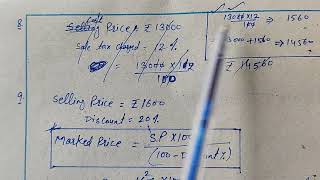 8. Cost Price = ₹ 13000
Sale tax charged = 12%
= 13000 × 12
100
13000 × 12 ⇒ 1560
100
13000 + 1560 ⇒ 14560
₹ 14560
9. Selling Price = ₹ 1600
Discount = 20%
Marked Price = S.P × 100
(100 - Discount%)